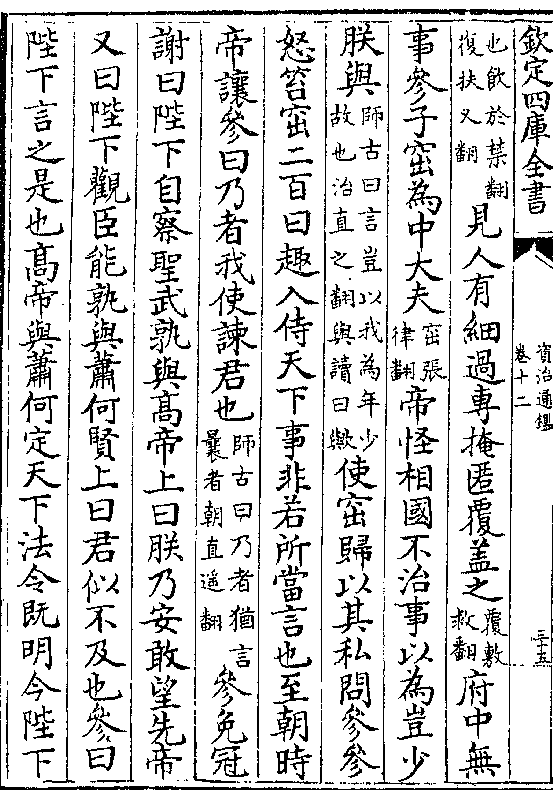 欽定四庫全書
資治通鑑
卷十二
三十五
也飲於禁翻復扶又翻見人有細過專掩匿覆盖之覆敷救翻府中無
事參子窋為中大夫窋張律翻帝怪相國不治事以為豈少
朕與師古曰言豈以我為年少故也治直之翻與讀曰歟使窋歸以其私問參參
怒笞窋二百曰趣入侍天下事非若所當言也至朝時
帝讓參曰乃者我使諫君也師古曰乃者猶言曩者朝直遥翻參免冠
謝曰陛下自察聖武孰與髙帝上曰朕乃安敢望先帝
又曰陛下觀臣能孰與蕭何賢上曰君似不及也參曰
陛下言之是也髙帝與蕭何定天下法令既明今陛下